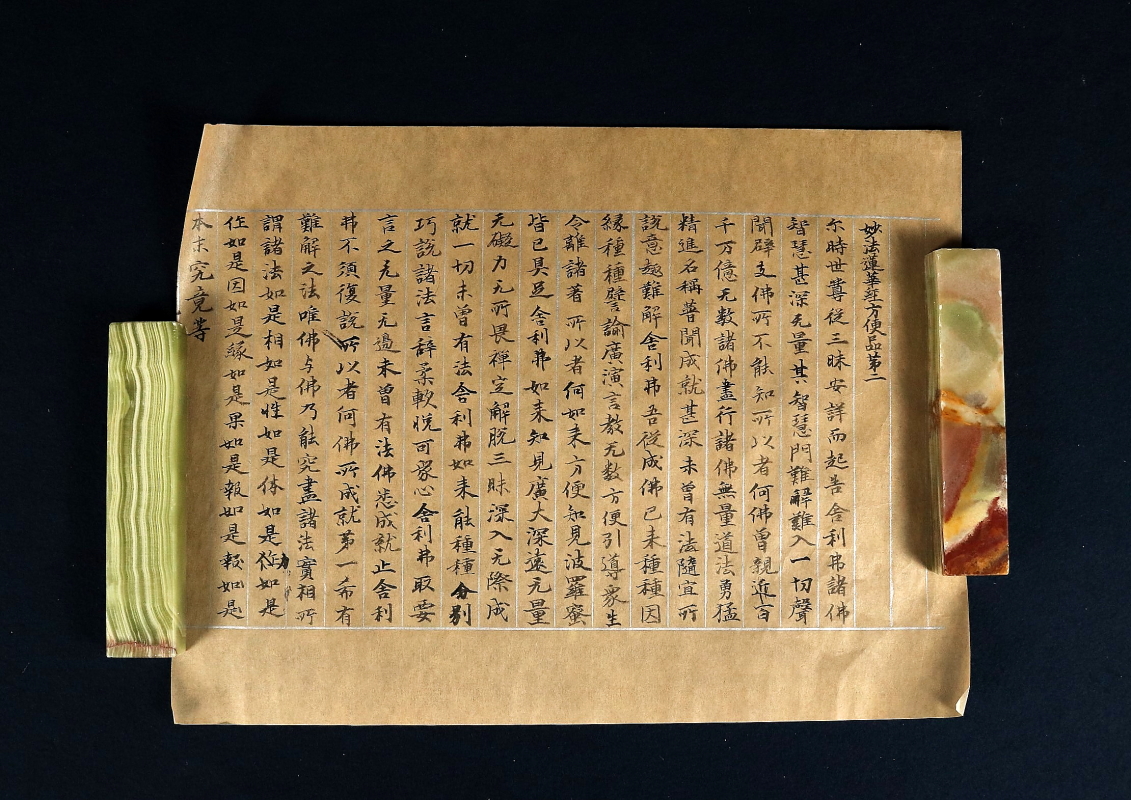 妙法蓮華経方便品第二
尓時世尊従三昧安詳而起告舎利弗諸佛
智慧甚深无量其智慧門難解難入一切聲
聞辟支佛所不能知所以者何佛曽親近百
千万億无数諸佛盡行諸佛無量道法勇猛
精進名稱普聞成就甚深未曽有法隨宜所
説意趣難解舎利弗吾従成佛已来種種因
縁種種譬諭廣演言教无数方便引導衆生
令離諸著所以者何如来方便知見波羅蜜
皆已具足舎利弗如来知見廣大深遠无量
无礙力无所畏禅定解脱三昧深入无際成
就一切未曽有法舎利弗如来能種種分別
巧説諸法言辞柔軟悦可衆心舎利弗取要
言之无量无邊未曽有法佛悉成就止舎利
弗不須復説所以者何佛所成就第一希有
難解之法唯佛与佛乃能究盡諸法實相所
謂諸法如是相如是性如是体如是力如是
作如是因如是縁如是果如是報如是報如是
本末究竟等